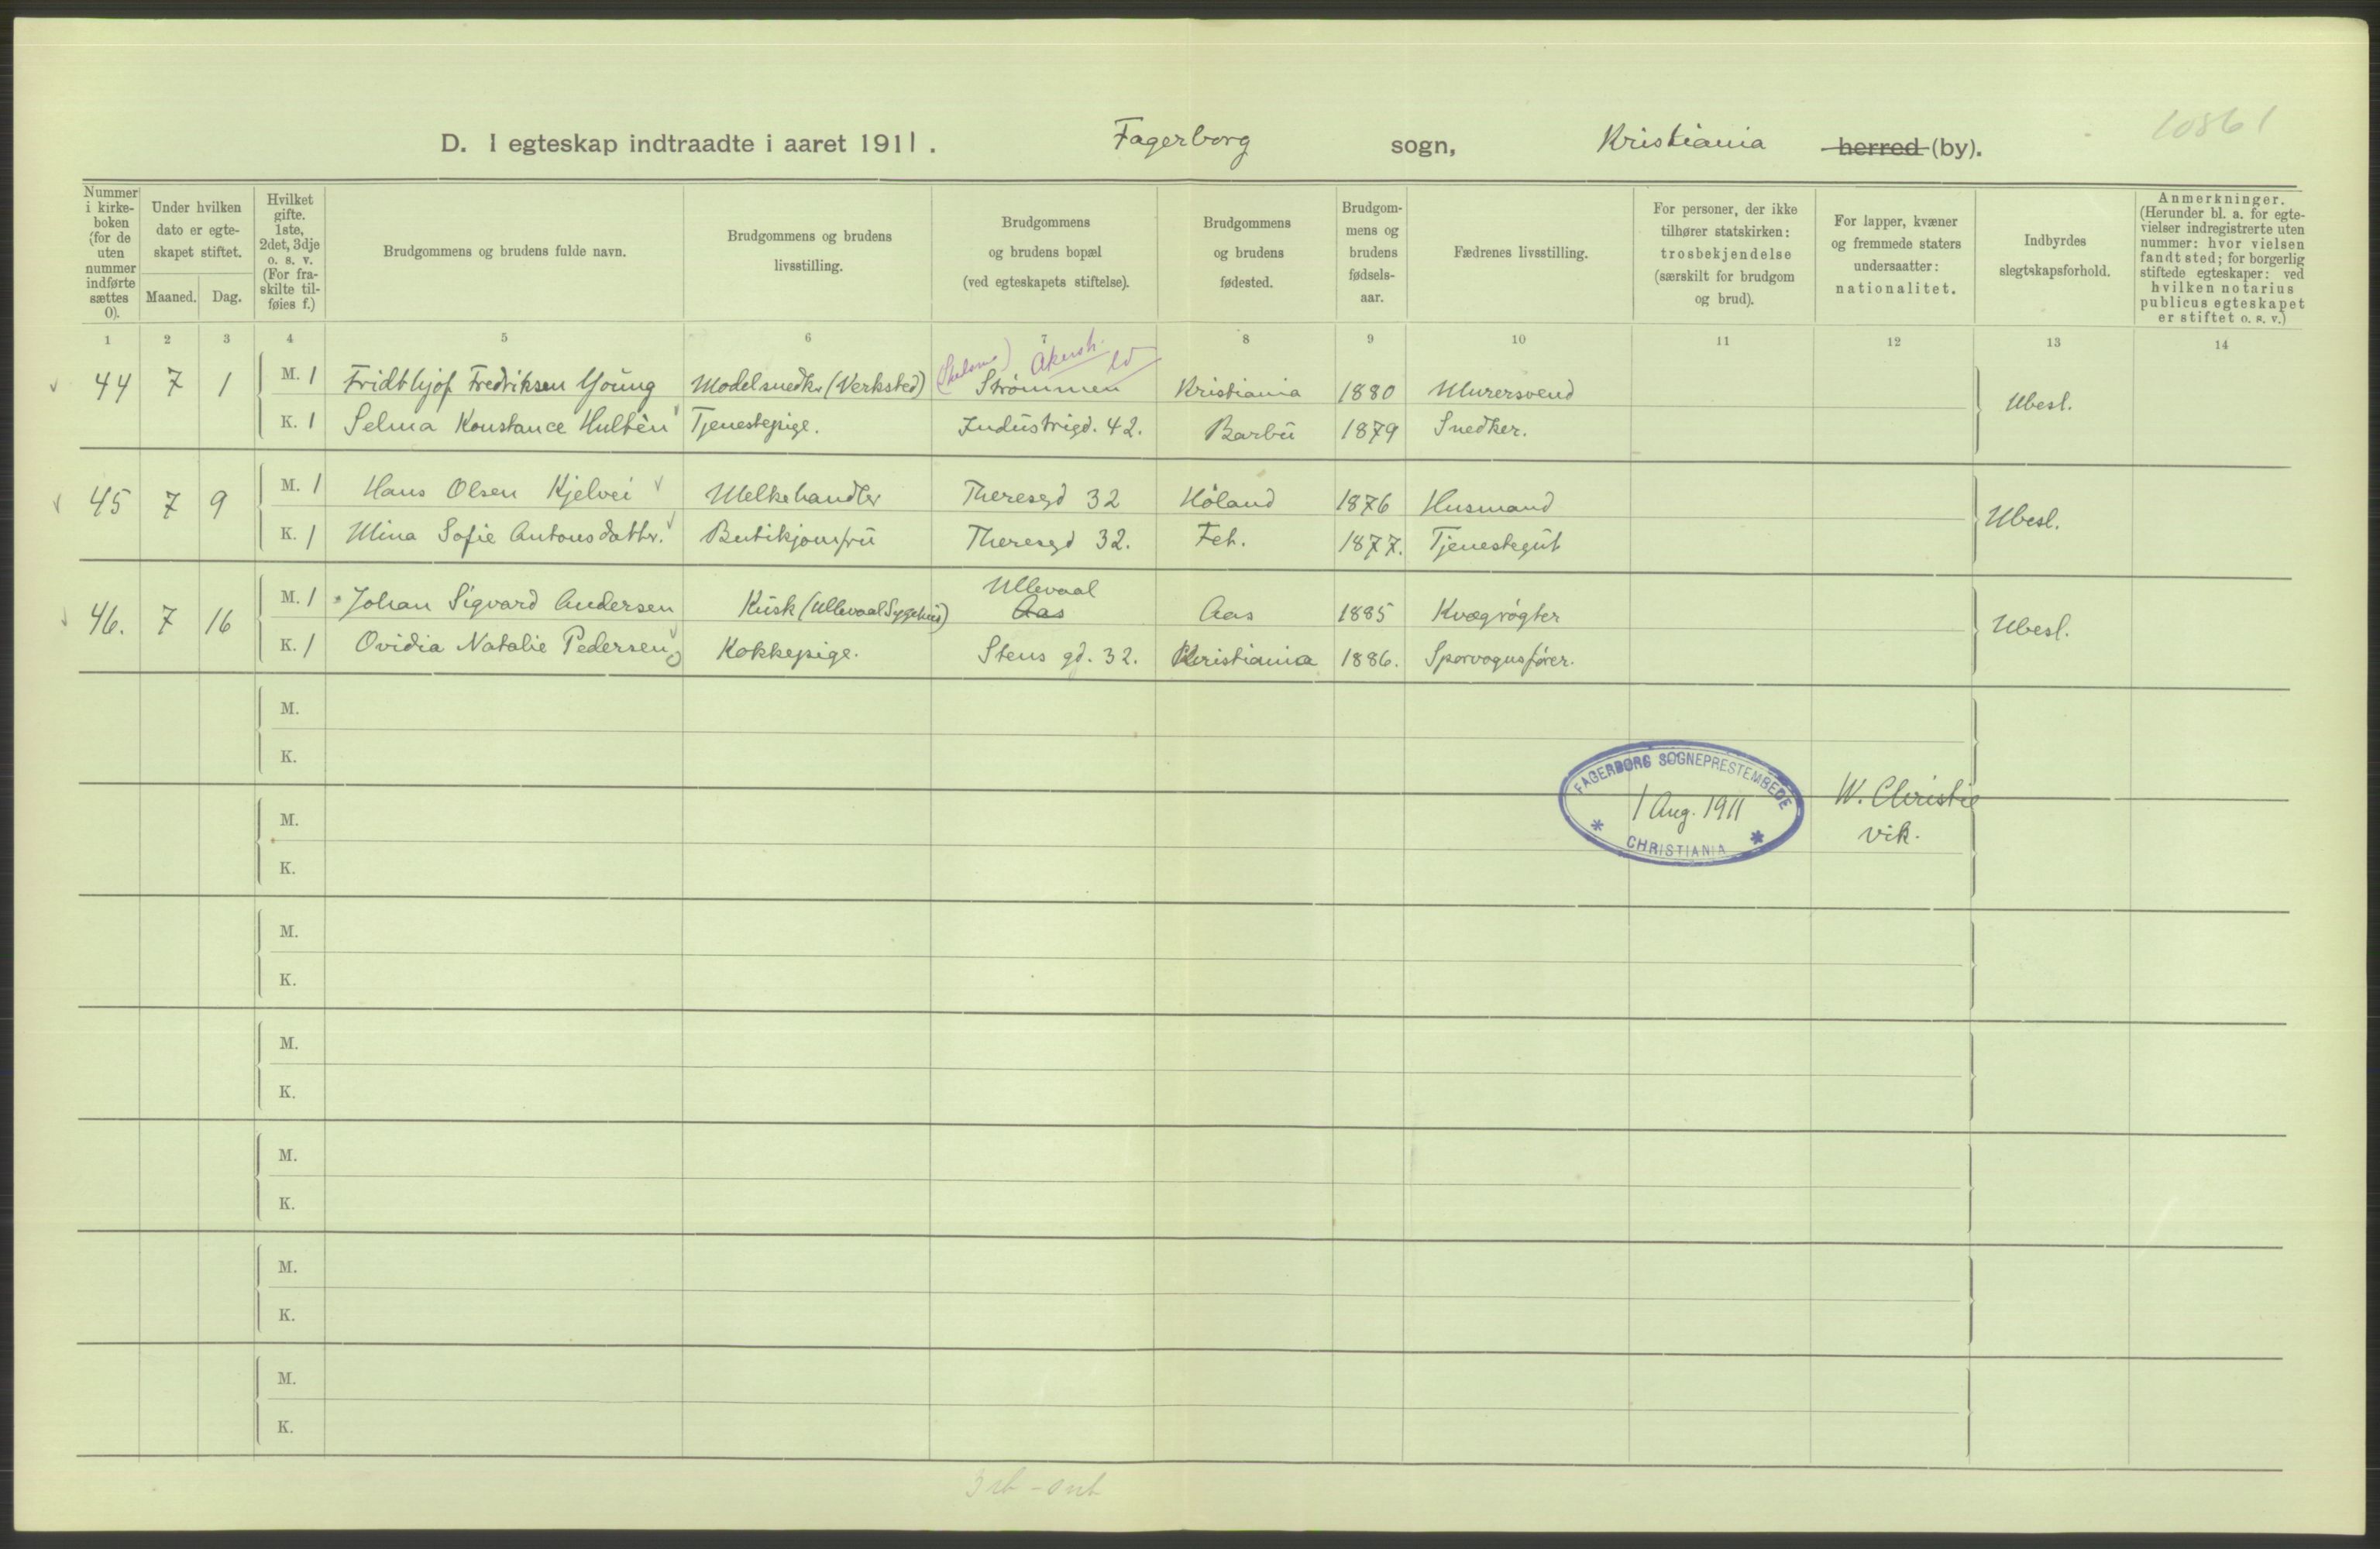 10861
D. I egteskap indtraadte i aaret 1911. Fagerborg sogn, Kristiania herred (by).
Nummer i kirke-boken (for de uten nummer indførte sættes 0).
Under hvilken dato er egte-skapet stiftet.
Maaned. Dag.
Hvilket gifte. 1ste, 2det, 3dje o. s. v. (For fra-skilte til-føies f.)
Brudgommens og brudens fulde navn.
Brudgommens og brudens livsstilling.
Brudgommens og brudens bopæl (ved egteskapets stiftelse).
Brudgommens og brudens fødested.
Brudgom-mens og brudens fødsels-aar.
Fædrenes livsstilling.
For personer, der ikke tilhører statskirken: trosbekjendelse (særskilt for brudgom og brud).
For lapper, kvæner og fremmede staters undersaatter: nationalitet.
Indbyrdes slegtskapsforhold.
Anmerkninger. (Herunder bl. a. for egte-vielser indregistrerte uten nummer: hvor vielsen fandt sted; for borgerlig stiftede egteskaper: ved hvilken notarius publicus egteskapet er stiftet o. s. v.)
1 2 3 4 5 6 7 8 9 10 11 12 13 14
Akersh.
44 7 1 M. 1 Fridthjof Fredriksen Young Modelsnedkr (Verksted) Strømmen Kristiania 1880 Murersvend Ubesl.
K. 1 Selma Konstance Hultén Tjenestepige. Industrigd. 42. Barbu 1879 Snedker.
45 7 9 M. 1 Hans Olsen Kjelvei Melkehandler Theresegd 32 Høland 1876 Husmand Ubesl.
K. 1 Mina Sofie Antonsdatter. Butikjomfru Theresegd 32. Fet. 1877. Tjenestegut
Ullevaal
46. 7 16 M. 1 Johan Sigvard Andersen Kusk (Ullevaal Sygehus) Aas Aas 1885 Kvægrøgter Ubesl.
K. 1 Ovidia Natalie Pedersen Kokkepige. Stens gd. 32. Kristiania 1886. Sporvognsfører.
M.
K.
FAGERBORG SOGNEPRESTEMBEDE
1 Aug. 1911
CHRISTIANIA
W. Christie
vik.
M.
K.
M.
K.
M.
K.
M.
K.
M.
K.
M.
K.